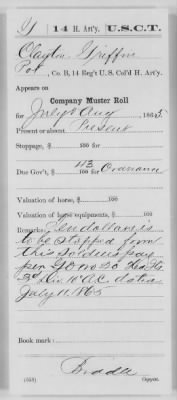 G | 14 H. Art'y. | U.S.C.T.
Clayton Griffin
Pvt., Co. B, 14 Reg't U. S. Col'd H. Art'y.
Appears on
Company Muster Roll
for July & Aug, 1865.
Present or absent Present
Stoppage, $ 100 for
Due Gov't, $ 43/100 for Ordnance
Valuation of horse, $ 100
Valuation of horse equipments, $ 100
Remarks: Ten dollars is
to be stopped from
this Soldiers pay
per G O No 20 Hd Qrs
3d Div. 10 A.C. dated
July 11. 1865
Book mark:
(858)
Copyist.